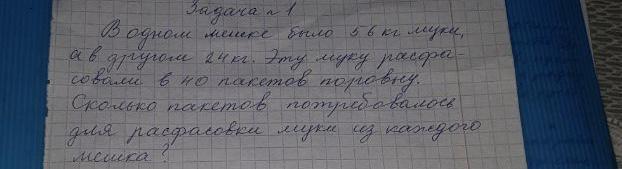 Задача №1
В одном мешке было 56 кг муки,
а в другом 24 кг. Эту муку расфа-
совали в 40 пакетов поровну.
Сколько пакетов потребовалось
для расфасовки муки из каждого
мешка?